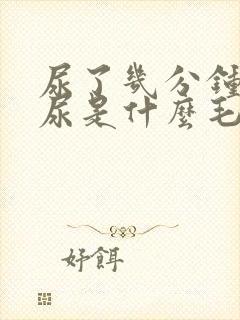 尿了幾分鐘
尿是什麼毛
好餌